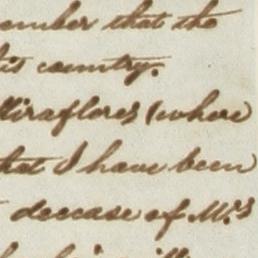 ember that the
his country.
Miraflores (where
that I have been
decease of Mrs